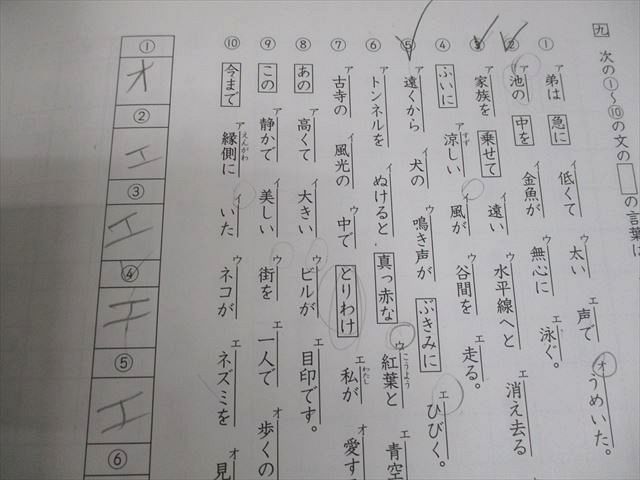 九 次の①〜⑩の文の□の言葉は
① ア弟は 急に イ低くて ウ太い エ声で オうめいた。
② ア池の 中を イ金魚が ウ無心に エ泳ぐ。
③ ア家族を 乗せて イ遠い ウ水平線へと エ消え去る
④ ふいに ア涼しい イ風が ウ谷間を エ走る。
すず
⑤ ア遠くから イ犬の ウ鳴き声が ぶきみに エひびく。
⑥ アトンネルを イぬけると 真っ赤な ウ紅葉と エ青空
こうよう
⑦ ア古寺の イ風光の ウ中で とりわけ エ私が オ愛す
わたし
⑧ あの ア高くて イ大きい ウビルが エ目印です。
⑨ この ア静かで イ美しい ウ街を エ一人で オ歩くの
⑩ 今まで ア縁側に イいた ウネコが エネズミを オ見
えんがわ
① オ
② エ
③ エ
④ エ
⑤ エ
⑥